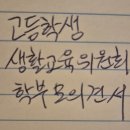 고등학생
생활교육위원회
학부모의견서